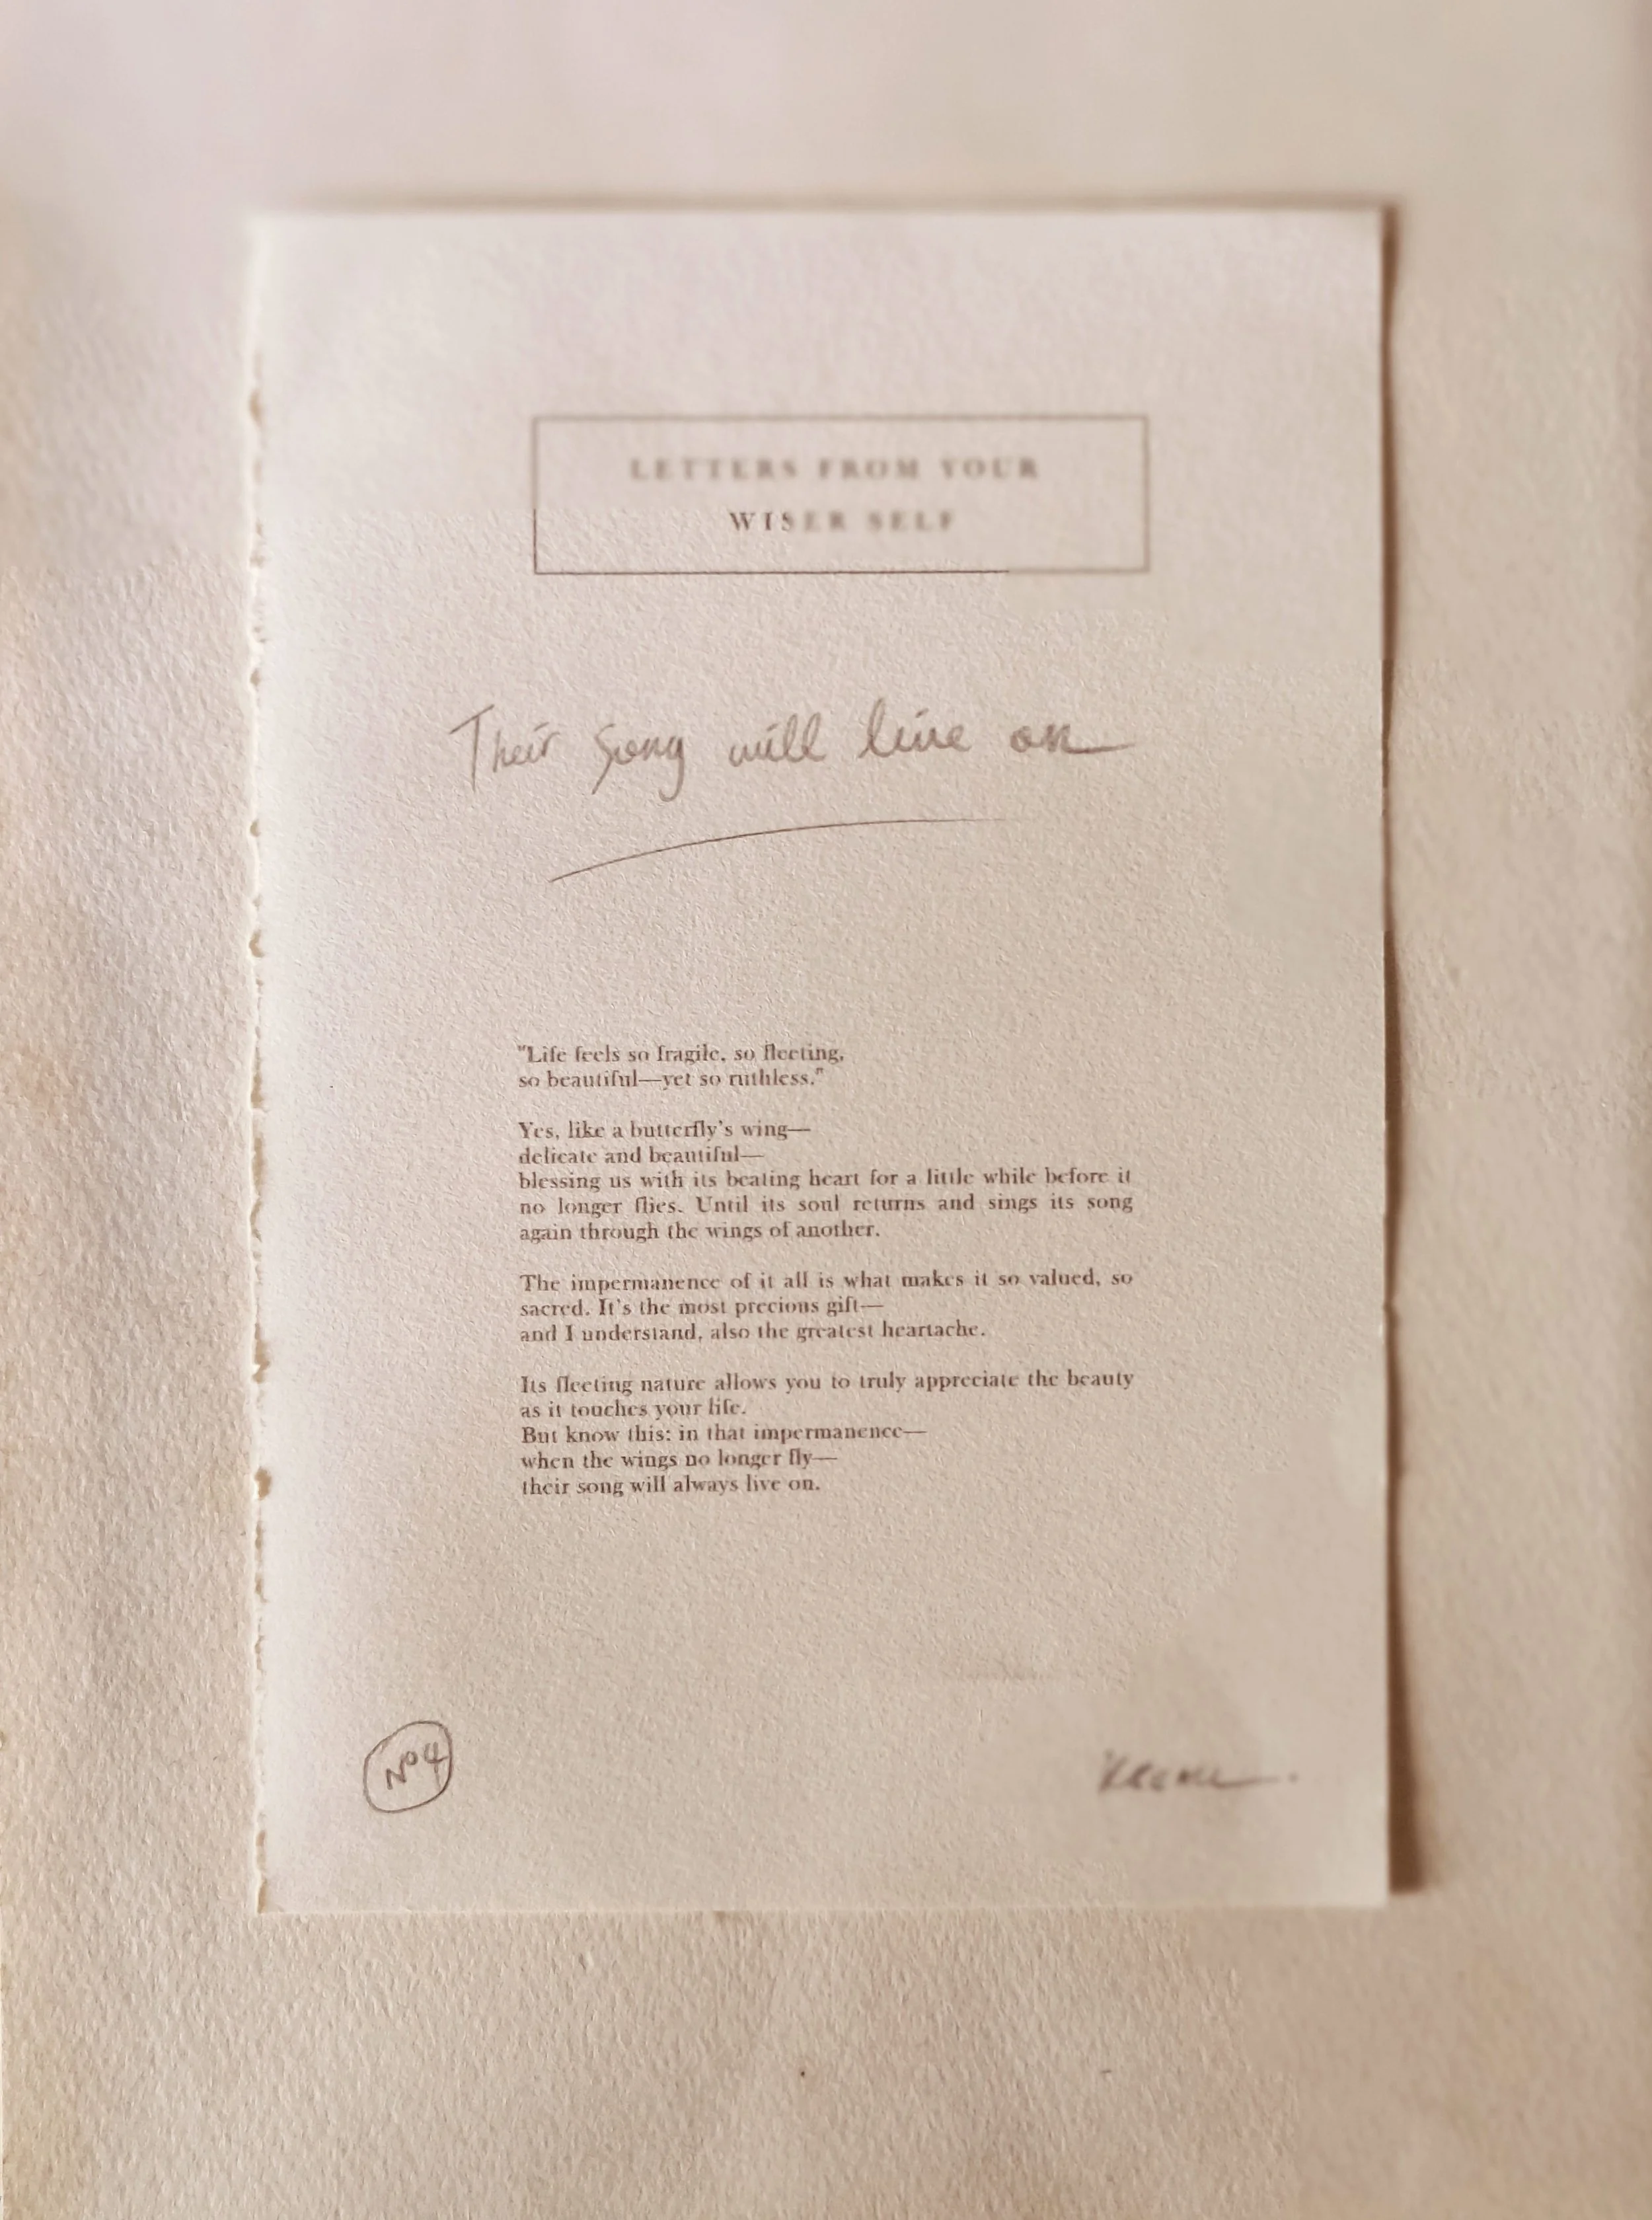 LETTERS FROM YOUR
WISER SELF
Their song will live on
"Life feels so fragile, so fleeting,
so beautiful—yet so ruthless."
Yes, like a butterfly's wing—
delicate and beautiful—
blessing us with its beating heart for a little while before it
no longer flies. Until its soul returns and sings its song
again through the wings of another.
The impermanence of it all is what makes it so valued, so
sacred. It's the most precious gift—
and I understand, also the greatest heartache.
Its fleeting nature allows you to truly appreciate the beauty
as it touches your life.
But know this: in that impermanence—
when the wings no longer fly—
their song will always live on.
Nº4